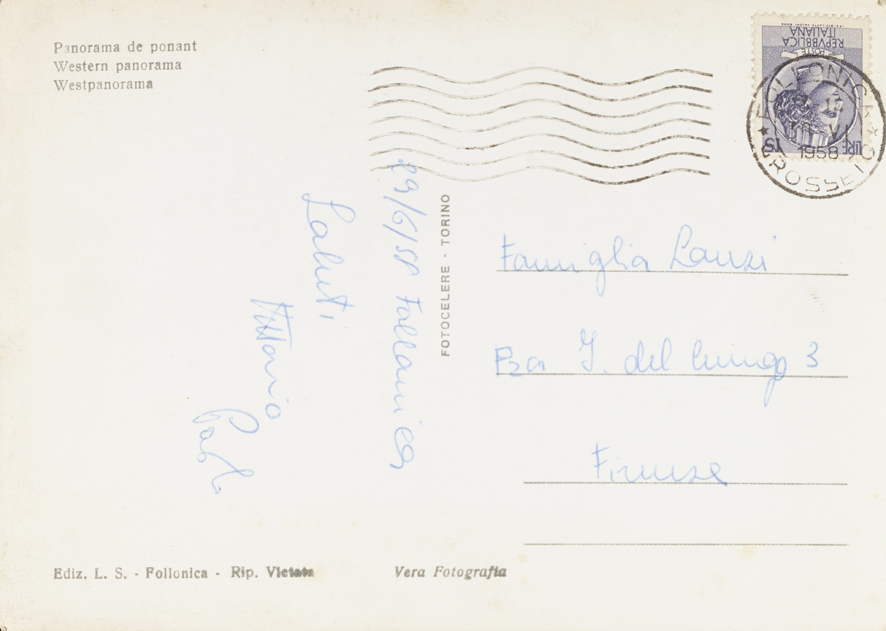 Panorama de ponant
Western panorama
Westpanorama
29/6/58 Follonica
Saluti
Vittorio
Paolo
FOTOCELERE - TORINO
POSTE
REPVBBLICA
ITALIANA
LIRE 15
FOLLONICA
1958
GROSSETO
Famiglia Lanzi
Pza I. del lungo 3
Firenze
Ediz. L. S. - Follonica - Rip. Vietata
Vera Fotografia